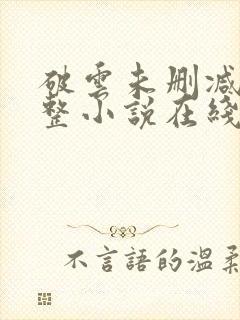 破雲未刪減
整小說在綫
不言語的溫柔